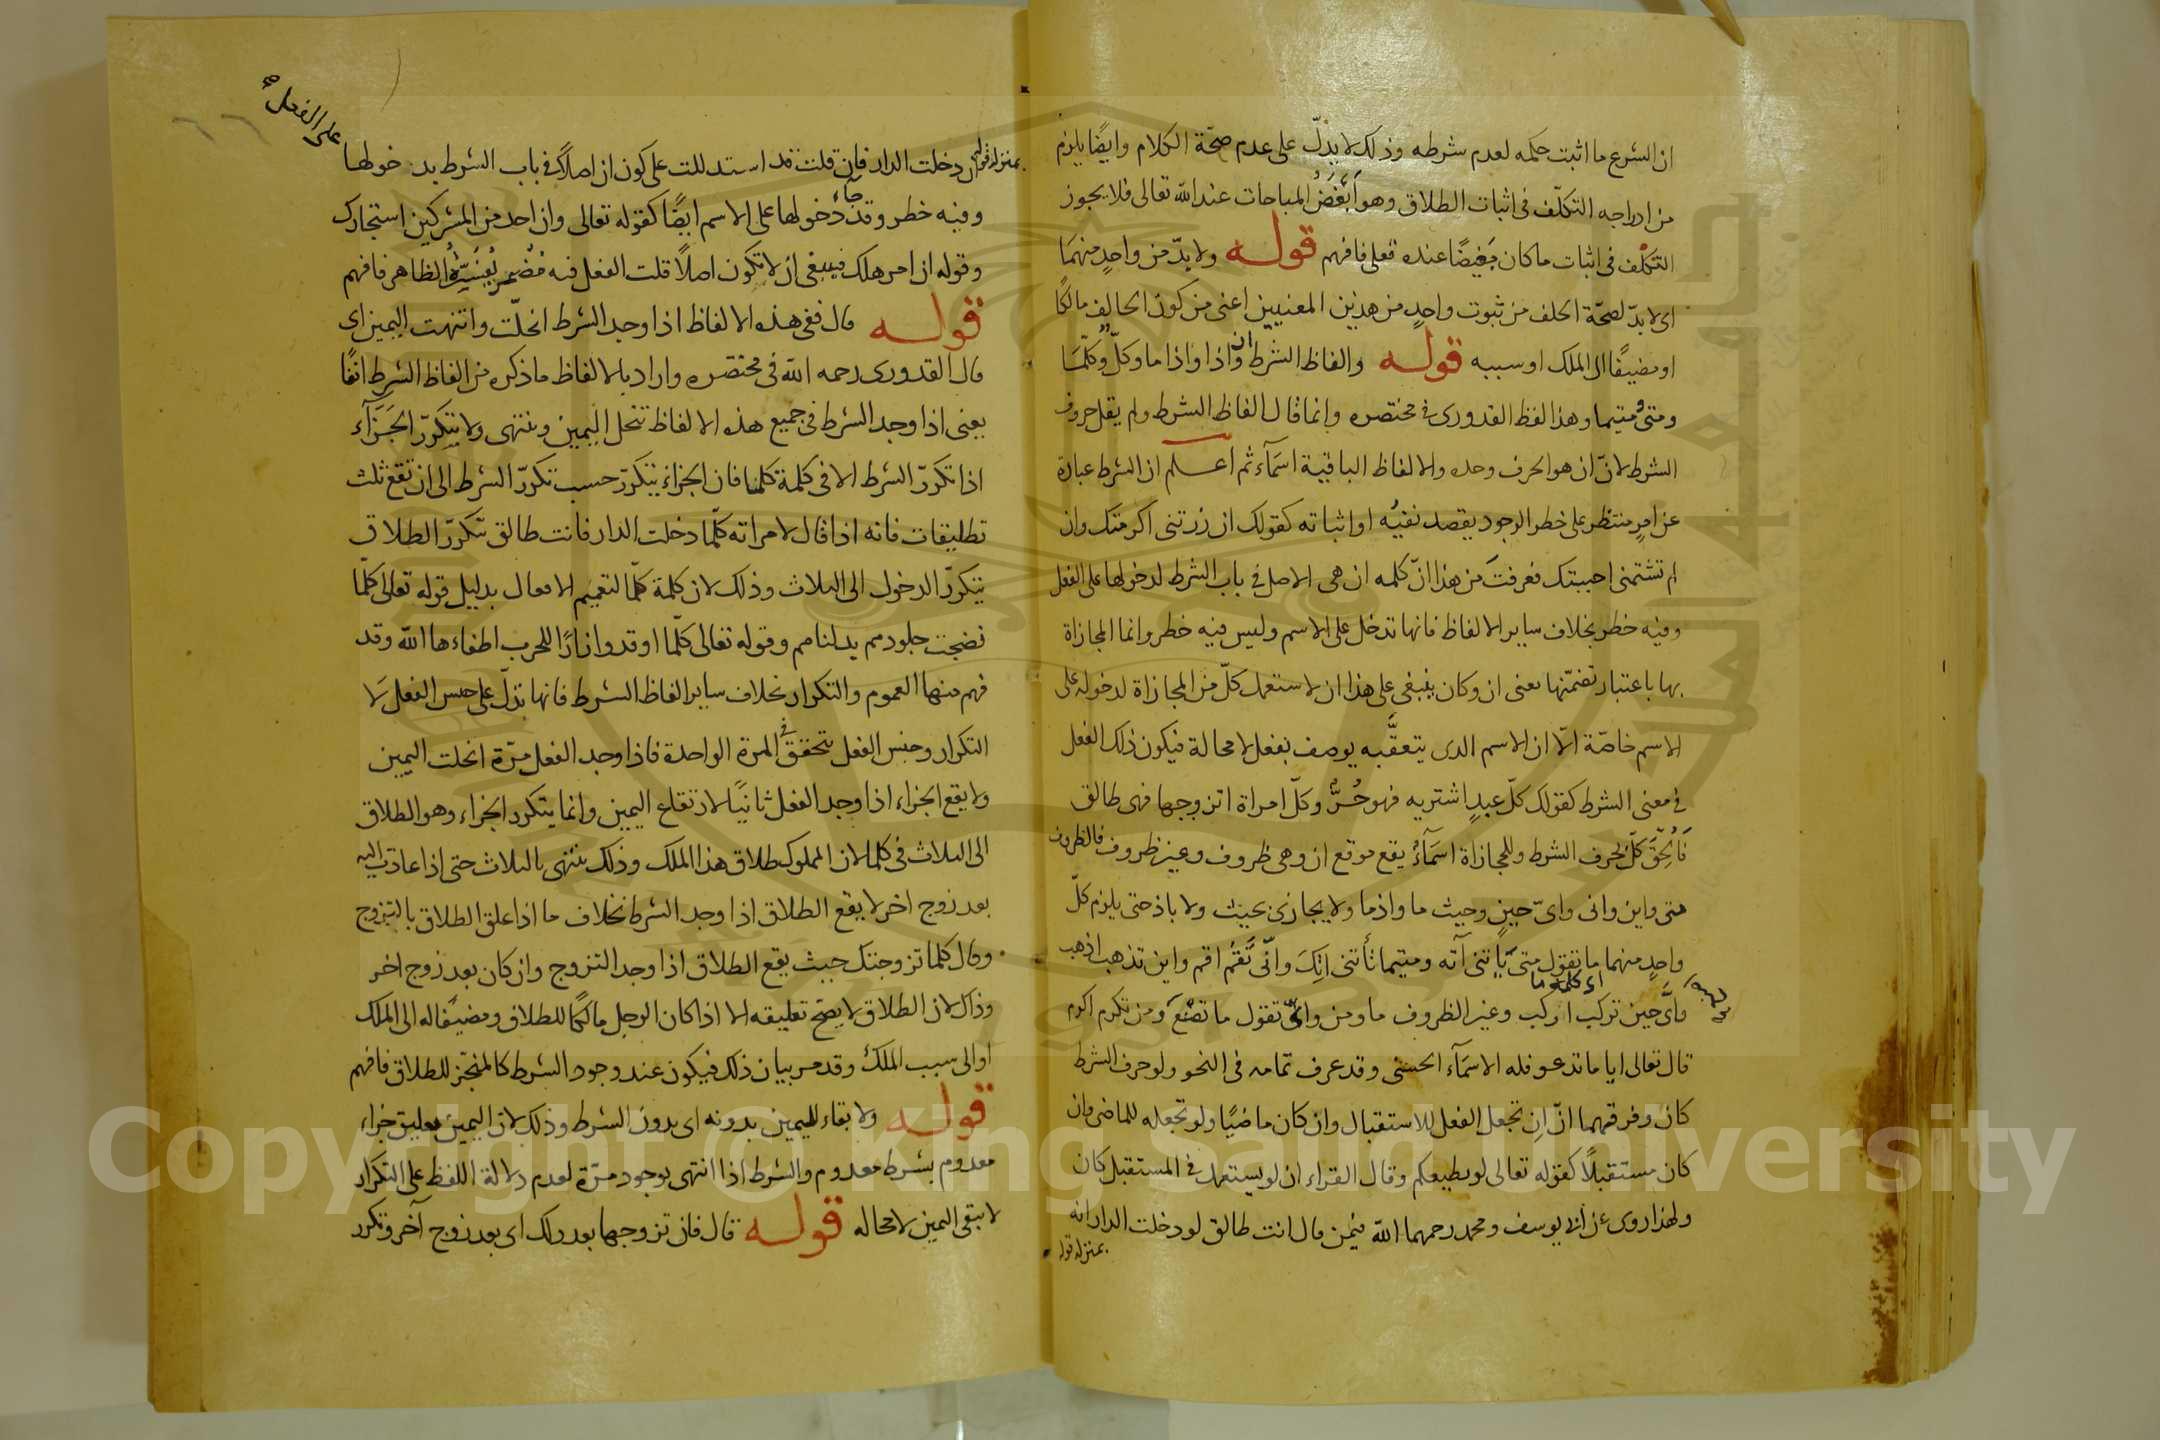 ان الشرع ما اثبت حكمه لعدم شرطه وذلك لا يدلّ على عدم صحّة الكلام وايضًا يلزم
من ادراجه التكلّف فى اثبات الطلاق وهو اَبْغَضُ المباحات عند الله تعالى فلا يجوز
التكلّف فى اثبات ما كان بَغيضًا عنده تعلى فافهم قوله ولا بدّ من واحدٍ منهمَا
اى لا بدّ لصحّة الحلف من ثبوت واحدٍ من هذين المعنيين اعنى من كون الحالف مالكًا
او مضيفًا الى الملك او سببه قوله والفاظ الشرط ان واذا واذا ما وكلٌّ وكلّمَا
ومتى ومتيما وهذا لفظ القدورى فى مختصره وانما قال الفاظ الشرط ولم يقل حروف
الشرط لانّ ان هو الحرف وحده والالفاظ الباقية اسمَآء ثم اعلم ان الشرط عبارة
عن امرٍ منتظر على خطر الوجود يقصد نفيُه او اثباته كقولك ان زرتنى اكرمتك وان
لم تشتمنى احببتك فعرفتَ من هذا انّ كلمه ان هى الاصل فى باب الشرط لدخولها على الفعل
وفيه خطر بخلاف ساير الالفاظ فانها تدخل على الاسم وليس فيه خطر وانما المجازاة
بها باعتبار تضمّنها معنى ان وكان ينبغى على هذا ان لا يستعمل كلّ من المجازاة لدخوله على
الاسم خاصّة الّا ان الاسم الدى يتعقَّبه يوصف بفعل لا محالة فيكون ذلك الفعل
فى معنى الشرط كقولك كلّ عبدٍ اشتريه فهو حُرٌّ وكلّ امراة اتزوجها فهى طالق
فَاُلْحِقَ كلّ بحرف الشرط وللمجازاة اسمَآءٌ يقع موقع ان وهى ظروف وغير ظروف فالظروف
متى واين وانى واىّ حينٍ وحيث ما واذما ولا يجازى بحيث ولا باذ حتى يلزم كلّ
واحدٍ منهما ما تقول متى يَاتنى آته ومتيما تأتنى اتِكَ وانّى تَقُم اقم واين تذهب اذهب
واىَّ حين تركب اركب وغير الظروف ما ومن واىّ تقول ما تصْنَع ومن تكرم اكرم
قال تعالى ايا ما تدعو فله الاسمَآء الحسنى وقد عرف تمامه فى النحو ولو حرف الشرط
كان وفرقهما انّ اِن تجعل الفعل للاستقبال وان كان ماضيًا ولو تجعله للماضى وان
كان مستقبلًا كقوله تعالى لو يطيعكم وقال الفراء ان لو يستعمل فى المستقبل كان
ولهذا روى عن ابى يوسف ومحمد رحمهما الله فيمن قال انت طالق لو دخلت الدار انه
بمنزله قوله
على الفعل
بمنزله قوله ان دخلت الدار فان قلت قد استدللت على كون ان اصلاً فى باب الشرط بدخولها
وفيه خطر وقد جآء دخولها على الاسم ايضًا كقوله تعالى وان احد من المشركين استجارك
وقوله ان امر هلك فينبغى ان لا تكون اصلاً قلت الفعل فيه مُضمر يُفَسِّرُه الظاهر فافهم
قوله قال ففى هذه الالفاظ اذا وجد الشرط انحلّت وانتهت اليمين اى
قال القدورى رحمه الله فى مختصره واراد بالالفاظ ما ذكره من الفاظ الشرط انفًا
يعنى اذا وجد الشرط فى جميع هذه الالفاظ تنحل اليمين وتنتهى ولا يتكرّر الجَزَآء
اذا تكرّر الشرط الا فى كلمة كلما فان الجزاء يتكرّر حسب تكرّر الشرط الى ان تقع ثلث
تطليقات فانه اذا قال لامراته كلّما دخلت الدار فانت طالق تكرّر الطلاق
بتكرّر الدخول الى الثلاث وذلك لان كلمة كلّما لتعميم الافعال بدليل قوله تعالى كلّما
نضجت جلودهم بدلناهم وقوله تعالى كلّما اوقدوا نارًا للحرب اطفاءها الله وقد
فهم منها العموم والتكرار بخلاف ساير الفاظ الشرط فانها تدلّ على جنس الفعل لا
التكرار وجنس الفعل يتحقق فى المرة الواحدة فاذا وجد الفعل مرّة انحلت اليمين
ولا يقع الجزاء اذا وجد الفعل ثانيًا لارتفاع اليمين وانما يتكرر الجزاء وهو الطلاق
الى الثلاث فى كلما لان المملوك طلاق هذا الملك وذلك ينتهى بالثلاث حتى اذا عادت اليه
بعد زوج اخر لا يقع الطلاق اذا وجد الشرط بخلاف ما اذا علق الطلاق بالتزوج
وقال كلما تزوجتك حيث يقع الطلاق اذا وجد التزوج وان كان بعد زوج اخر
وذاك لان الطلاق لا يصحّ تعليقه الا اذا كان الرجل مالكًا للطلاق ومضيفًا له الى الملك
او الى سبب الملك وقد مر بيان ذلك فيكون عند وجود الشرط كالمنجّز للطلاق فافهم
قوله ولا بقاء لليمين بدونه اى بدون الشرط وذلك لان اليمين تعليق جزاء
معدوم بشرط معدوم والشرط اذا انتهى بوجوده مرّة لعدم دلالة اللفظ على التكرار
لا تبقى اليمين لا محاله قوله قال فان تزوجها بعد ذلك اى بعد زوج آخر وتكرر
Copyright © King Saud University